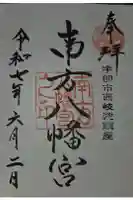 奉拝
宇部市西岐波鎮座
南方八幡宮
令和七年六月二日